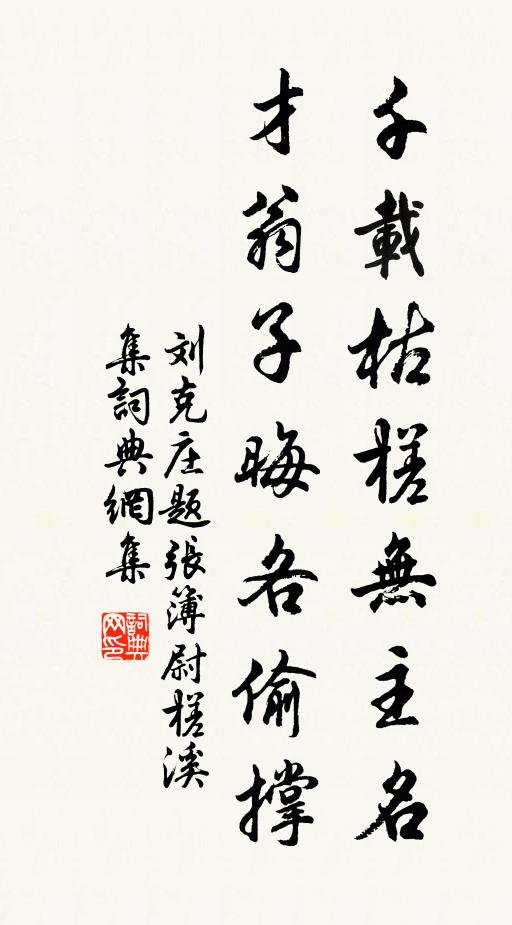 千載枯槎無主名
才翁子晦各偷撑
刘克庄题張簿尉槎溪
集詞典網集
詞典网印